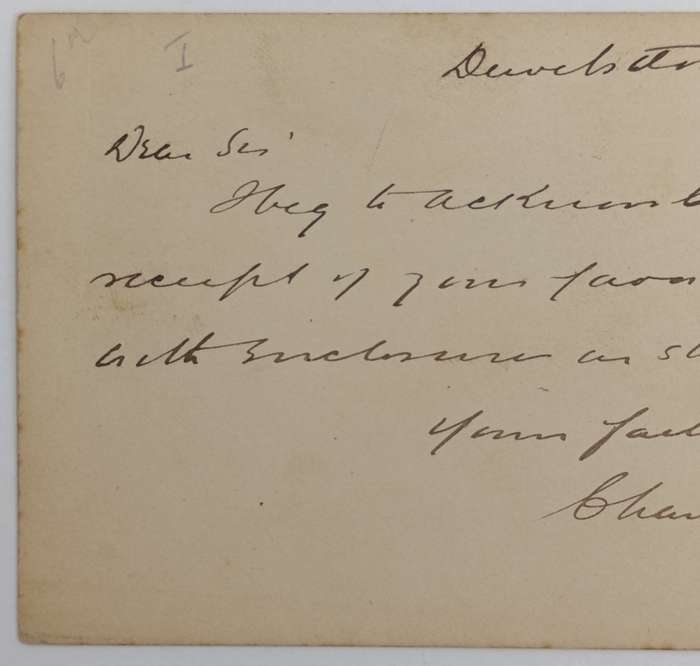 I
Dear Sir
I beg to acknowl
receipt of your favo
with Enclosure as st
Yours fait
Char